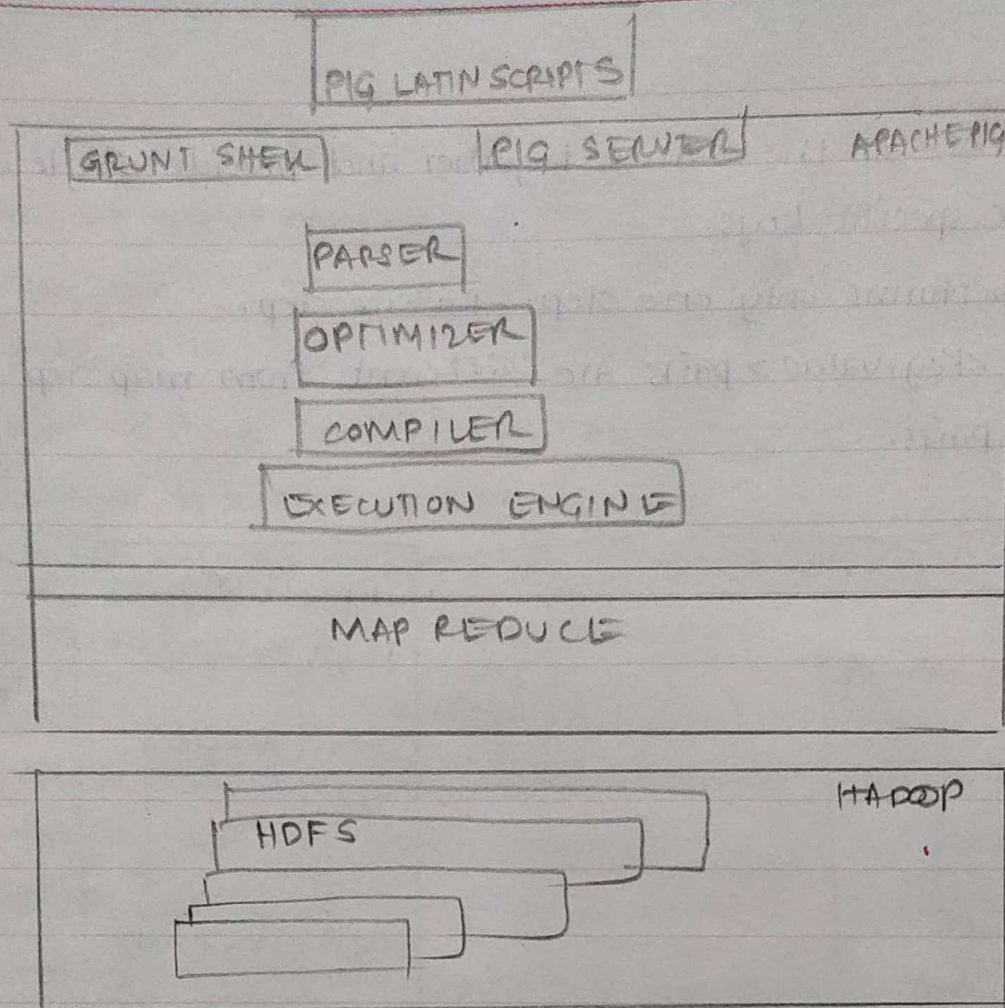 PIG LATIN SCRIPTS
GRUNT SHELL
PIG SERVER
APACHE PIG
PARSER
OPTIMIZER
COMPILER
EXECUTION ENGINE
MAP REDUCE
HADOOP
HDFS